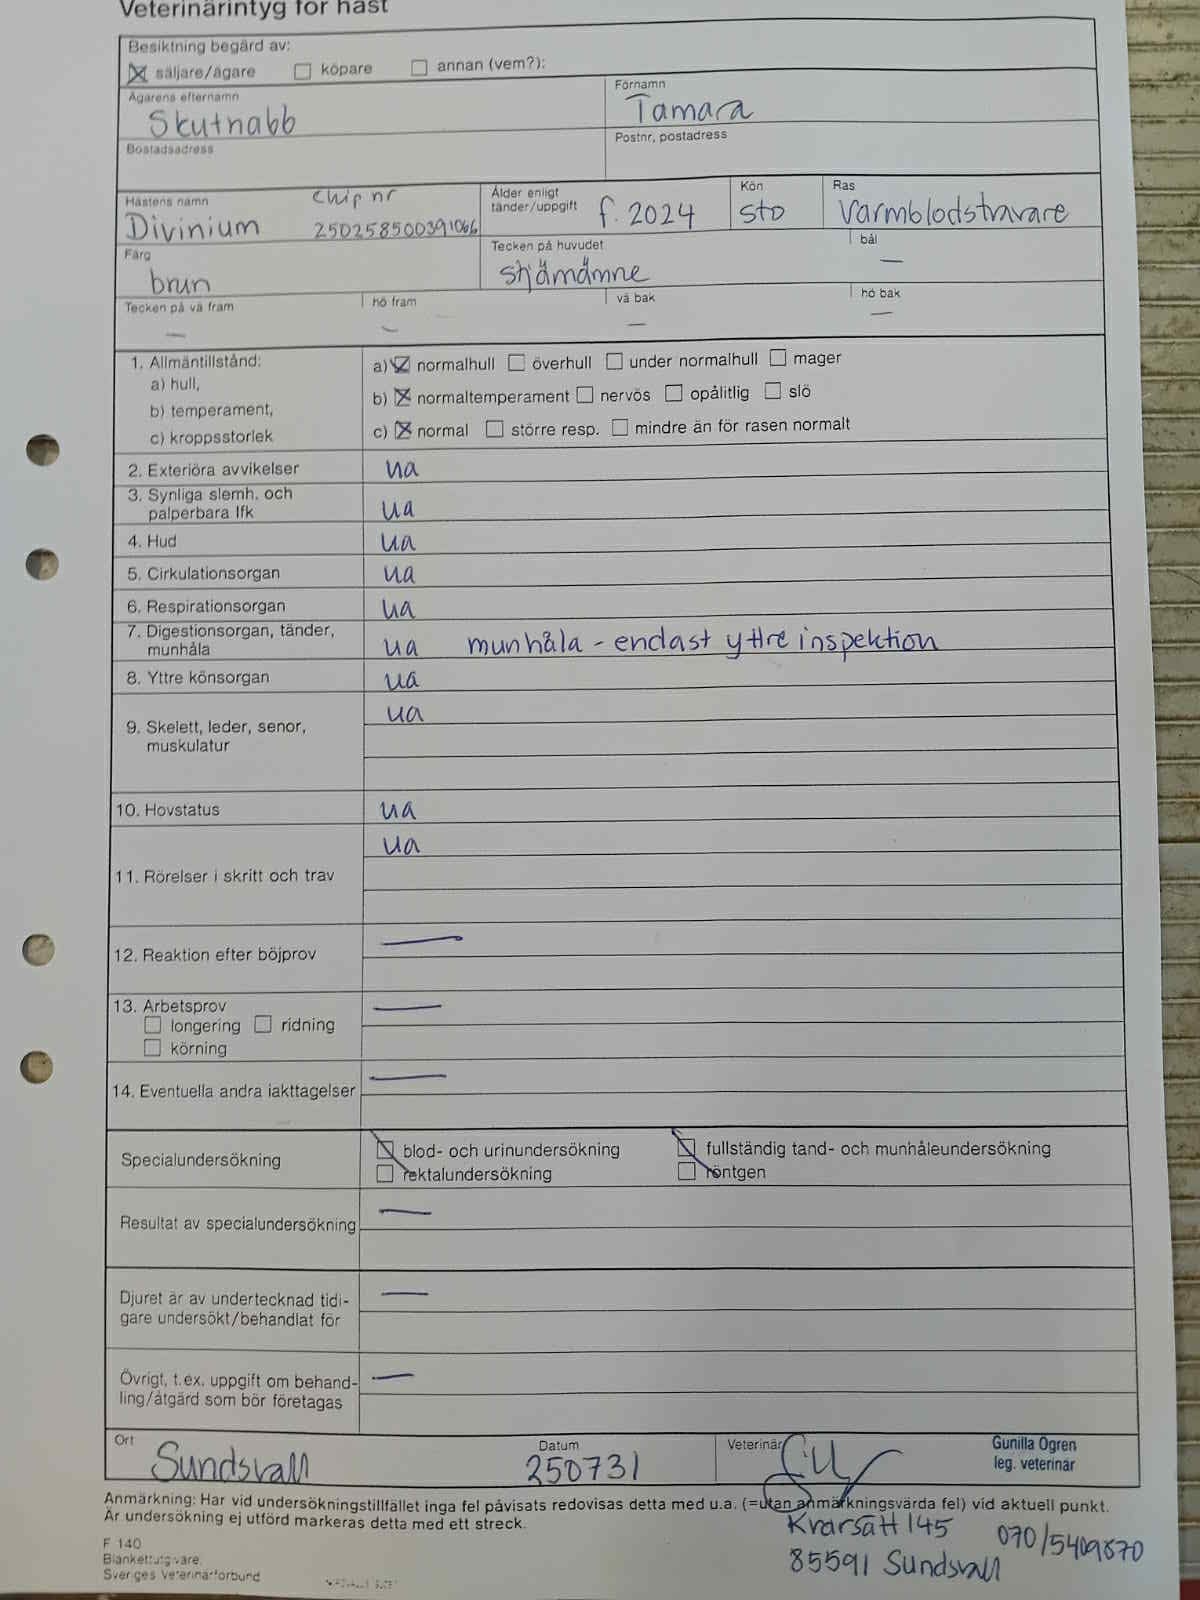 Veterinärintyg för häst
Besiktning begärd av:
säljare/ägare köpare annan (vem?):
Ägarens efternamn Förnamn
Skutnabb Tamara
Bostadsadress Postnr, postadress
Hästens namn chip nr Ålder enligt tänder/uppgift Kön Ras
Divinium 250258500391066 f. 2024 sto Varmblodstravare
Färg Tecken på huvudet bål
brun stjämämne —
Tecken på vä fram hö fram vä bak hö bak
— — — —
1. Allmäntillstånd: a) normalhull överhull under normalhull mager
a) hull,
b) temperament, b) normaltemperament nervös opålitlig slö
c) kroppsstorlek c) normal större resp. mindre än för rasen normalt
2. Exteriöra avvikelser ua
3. Synliga slemh. och
palperbara lfk ua
4. Hud ua
5. Cirkulationsorgan ua
6. Respirationsorgan ua
7. Digestionsorgan, tänder,
munhåla ua munhåla - endast yttre inspektion
8. Yttre könsorgan ua
9. Skelett, leder, senor, ua
muskulatur
10. Hovstatus ua
11. Rörelser i skritt och trav ua
12. Reaktion efter böjprov —
13. Arbetsprov —
longering ridning
körning
14. Eventuella andra iakttagelser —
Specialundersökning blod- och urinundersökning fullständig tand- och munhåleundersökning
rektalundersökning röntgen
Resultat av specialundersökning —
Djuret är av undertecknad tidi- —
gare undersökt/behandlat för
Övrigt, t.ex. uppgift om behand- —
ling/åtgärd som bör företagas
Ort Datum Veterinär Gunilla Ögren
Sundsvall 250731 leg. veterinär
Anmärkning: Har vid undersökningstillfället inga fel påvisats redovisas detta med u.a. (=utan anmärkningsvärda fel) vid aktuell punkt.
Är undersökning ej utförd markeras detta med ett streck.
Kvarsätt 145 070/5409870
85591 Sundsvall
F 140
Blankettutgivare:
Sveriges Veterinärförbund